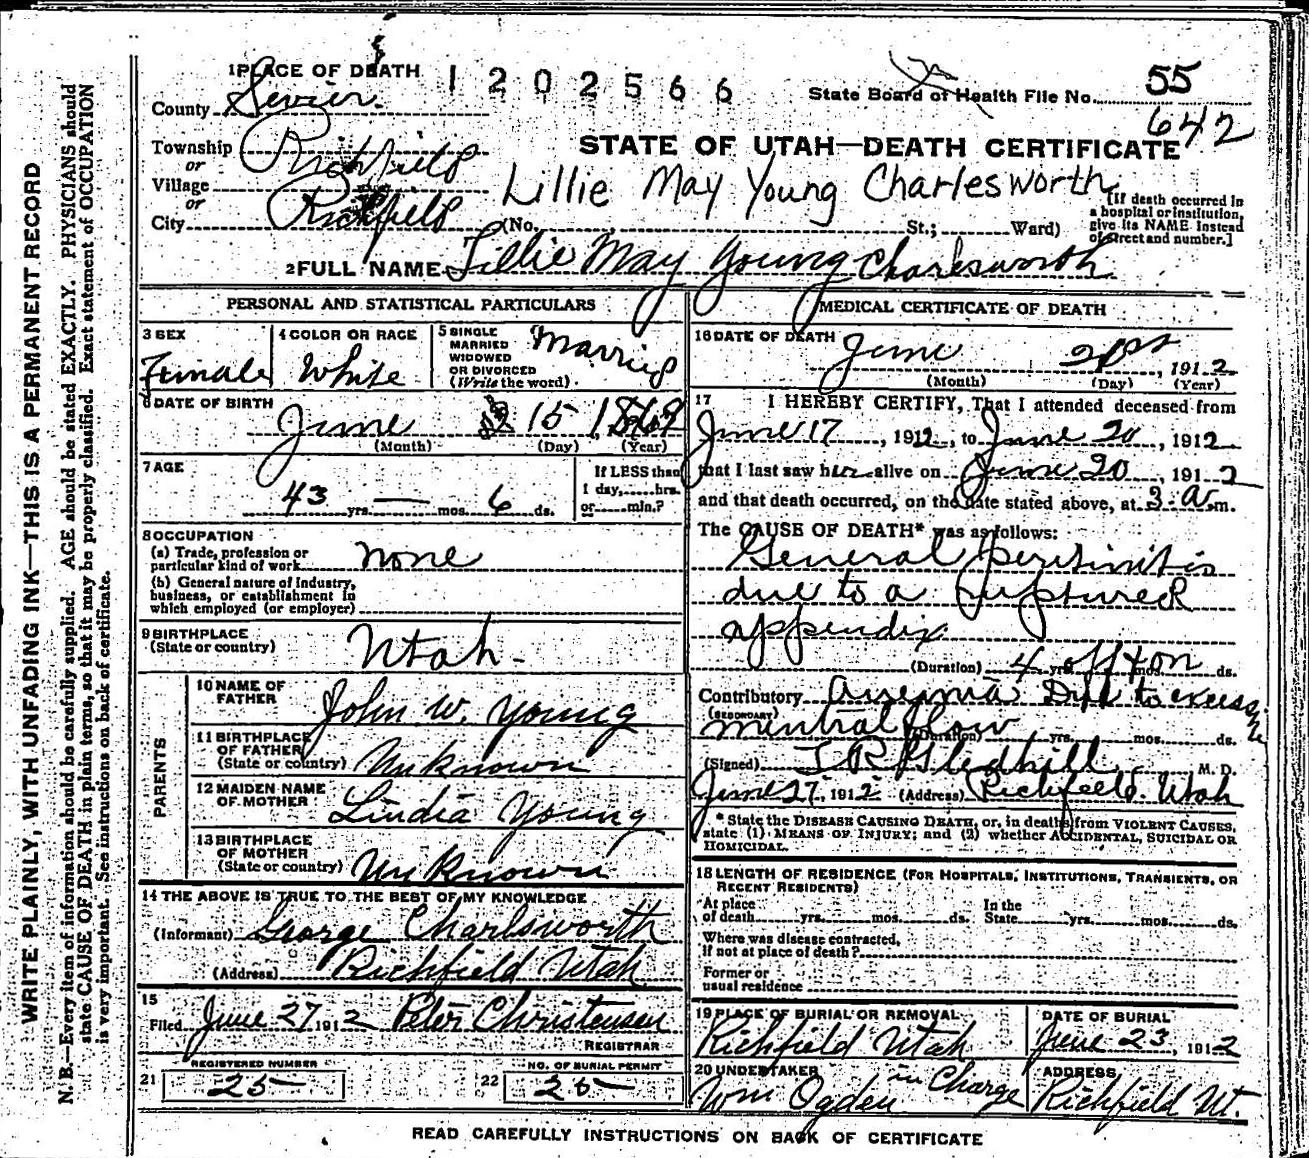 1 PLACE OF DEATH
1202566
State Board of Health File No. 55
642
County Sevier
STATE OF UTAH—DEATH CERTIFICATE
Township Richfield
or
Village
or
City Richfield
Lillie May Young Charlesworth
(No. St.; Ward)
[If death occurred in
a hospital or institution,
give its NAME instead
of street and number.]
2 FULL NAME Lillie May Young Charlesworth
PERSONAL AND STATISTICAL PARTICULARS
3 SEX
Female
4 COLOR OR RACE
White
5 SINGLE
MARRIED
WIDOWED
OR DIVORCED
(Write the word)
Married
6 DATE OF BIRTH
June 15, 1869
(Month) (Day) (Year)
7 AGE
43 yrs. — mos. 6 ds.
If LESS than
1 day, hrs.
or min.?
8 OCCUPATION
(a) Trade, profession or
particular kind of work none
(b) General nature of industry,
business, or establishment in
which employed (or employer)
9 BIRTHPLACE
(State or country) Utah
PARENTS
10 NAME OF
FATHER John W. Young
11 BIRTHPLACE
OF FATHER
(State or country) Unknown
12 MAIDEN NAME
OF MOTHER Lindia Young
13 BIRTHPLACE
OF MOTHER
(State or country) Unknown
14 THE ABOVE IS TRUE TO THE BEST OF MY KNOWLEDGE
(Informant) George Charlsworth
(Address) Richfield Utah
15
Filed June 27 1912 Peter Christensen
REGISTRAR
REGISTERED NUMBER
21 25
NO. OF BURIAL PERMIT
22 25
MEDICAL CERTIFICATE OF DEATH
16 DATE OF DEATH
June 21st, 1912
(Month) (Day) (Year)
17 I HEREBY CERTIFY, That I attended deceased from
June 17, 1912, to June 20, 1912
that I last saw her alive on June 20, 1912
and that death occurred, on the date stated above, at 3 a.m.
The CAUSE OF DEATH* was as follows:
General peritinitis
due to a ruptured
appendix
(Duration) 4 yrs. off & on mos. ds.
Contributory Anemia Due to excessive
(SECONDARY)
mentral flow (Duration) yrs. mos. ds.
(Signed) T. R. Gledhill M. D.
June 27, 1912 (Address) Richfield Utah
* State the DISEASE CAUSING DEATH, or, in deaths from VIOLENT CAUSES,
state (1) MEANS OF INJURY; and (2) whether ACCIDENTAL, SUICIDAL OR
HOMICIDAL.
18 LENGTH OF RESIDENCE (FOR HOSPITALS, INSTITUTIONS, TRANSIENTS, OR
RECENT RESIDENTS)
At place
of death yrs. mos. ds.
In the
State yrs. mos. ds.
Where was disease contracted,
if not at place of death?
Former or
usual residence
19 PLACE OF BURIAL OR REMOVAL
Richfield Utah
DATE OF BURIAL
June 23, 1912
20 UNDERTAKER
Wm Ogden in Charge
ADDRESS
Richfield Ut.
READ CAREFULLY INSTRUCTIONS ON BACK OF CERTIFICATE
WRITE PLAINLY, WITH UNFADING INK—THIS IS A PERMANENT RECORD
N. B.—Every item of information should be carefully supplied. AGE should be stated EXACTLY. PHYSICIANS should
state CAUSE OF DEATH in plain terms, so that it may be properly classified. Exact statement of OCCUPATION
is very important. See instructions on back of certificate.